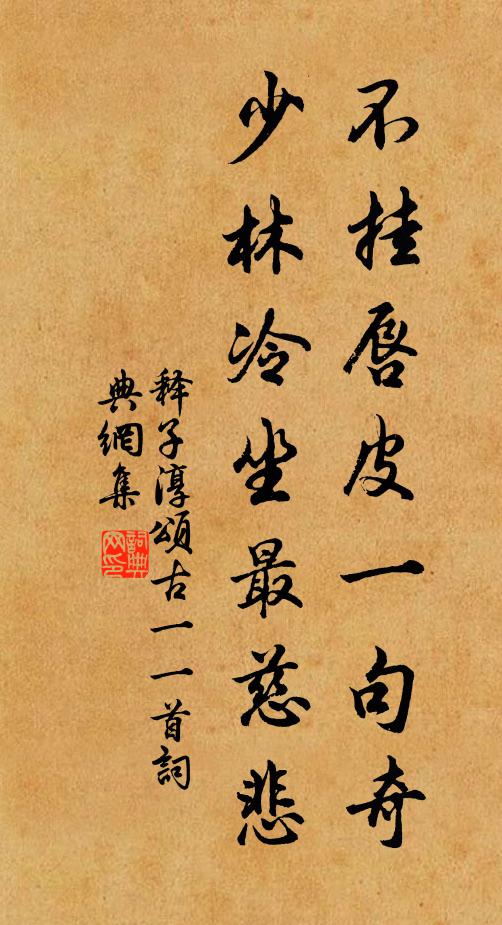 不挂唇皮一句奇
少林冷坐最慈悲
释子淳頌古一一首詞
典網集
詞典
网印